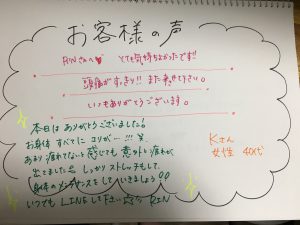 お客様の声
RINさんへ♥ とても気持ちよかったです!!
頭痛がすっきり!! また来ます。
いつもありがとうございます。
本日はありがとうございました!
お身体すべてにコリが…!!!
あまり疲れてないと感じても意外と疲れが
出てました しっかりストレッチもして
身体のメンテナンスをしていきましょう!!
いつでもLINEして下さい☆ RIN
Kさん
女性 40代